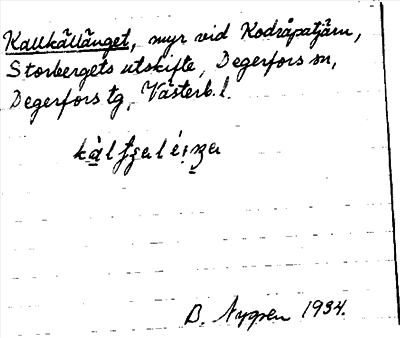 Kallkällänget, myr vid Kodråpatjärn,
Storbergets utskifte, Degerfors sn,
Degerfors tg, Västerb. l.
B. Nygren 1934.